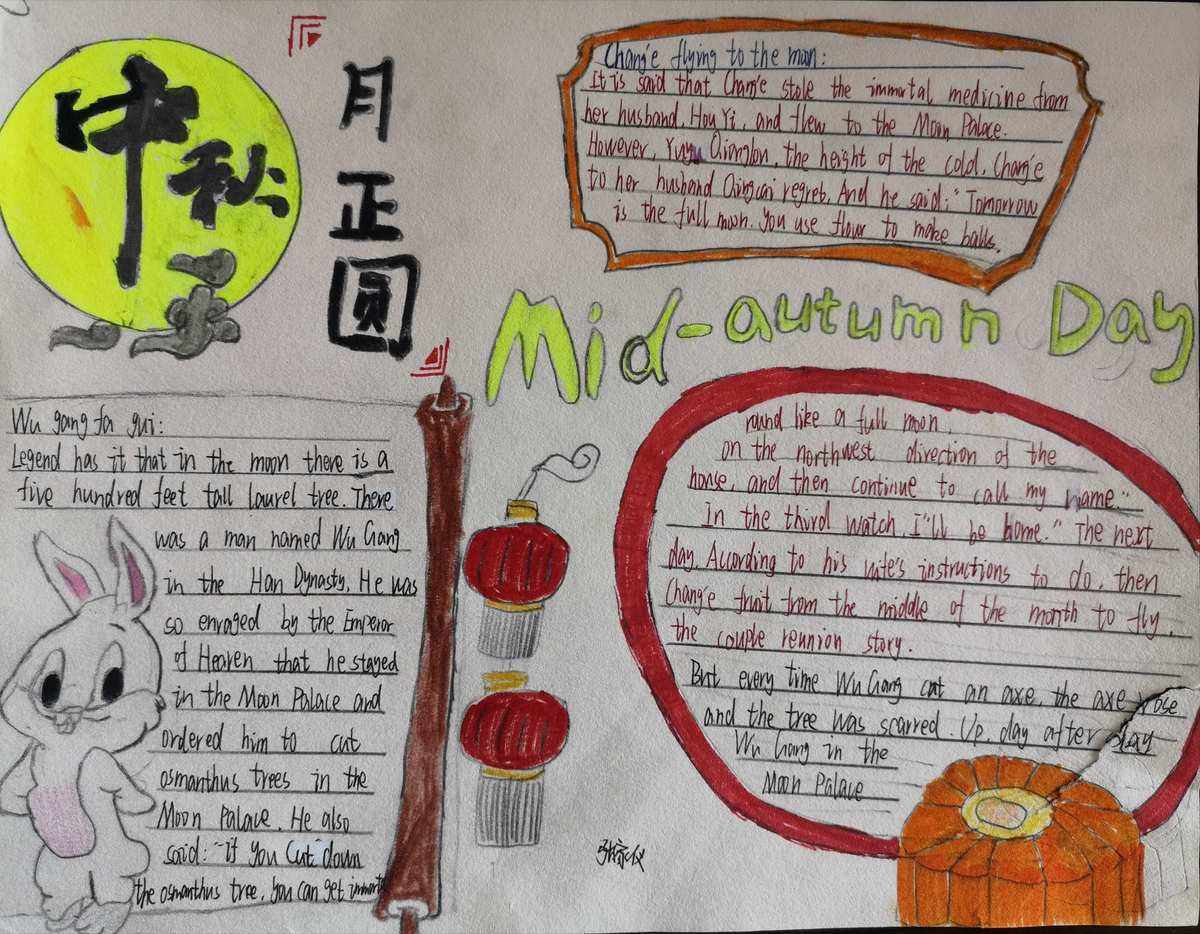 中秋
月正圆
Chang'e flying to the moon:
It is said that Chang'e stole the immortal medicine from
her husband, Hou Yi, and flew to the Moon Palace.
However, Qionglou, the height of the cold, Chang'e
to her husband Qingcai regret, And he said: "Tomorrow
is the full moon. You use flour to make balls,
Mid-autumn Day
Wu gang fa gui:
Legend has it that in the moon there is a
five hundred feet tall laurel tree. There
was a man named Wu Gang
in the Han Dynasty, He was
so enraged by the Emperor
of Heaven that he stayed
in the Moon Palace and
ordered him to cut
osmanthus trees in the
Moon Palace. He also
said: "if you cut down
the osmanthus tree, You can get immorta
round like a full moon,
on the northwest direction of the
house, and then continue to call my name."
In the third watch, I'll be home." The next
day, According to his wife's instructions to do, then
Chang'e fruit from the middle of the month to fly,
the couple reunion story.
But every time Wu Gang cut an axe, the axe rose
and the tree was scarred. Up, day after day
Wu Gang in the
Moon Palace